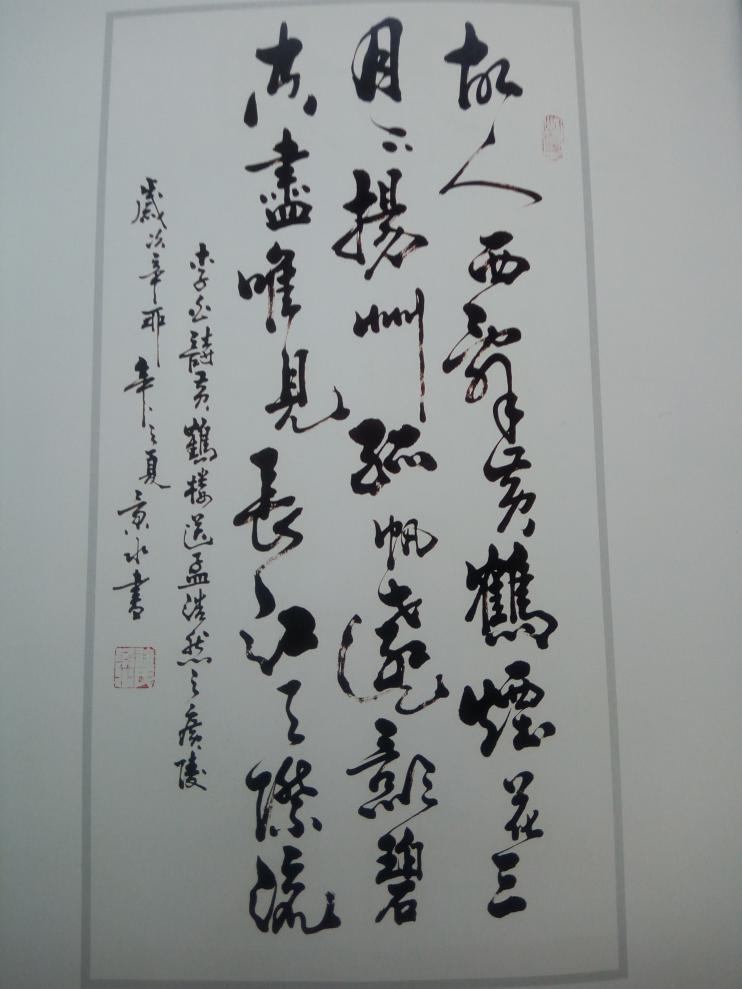 故人西辭黄鶴煙花三
月下揚州孤帆遠影碧
空盡唯見長江天際流
李白詩黄鶴楼送孟浩然之廣陵
歲次辛卯年之夏 水書